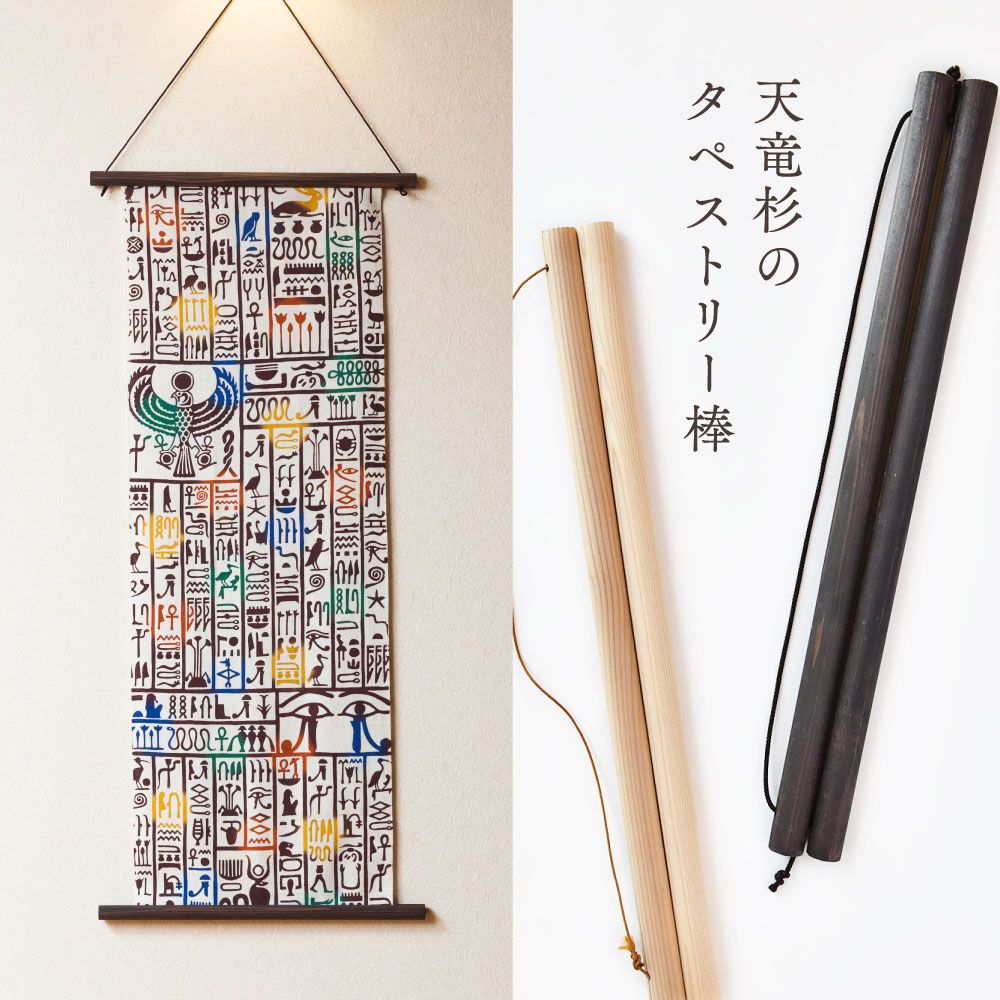 天竜杉の
タペストリー棒